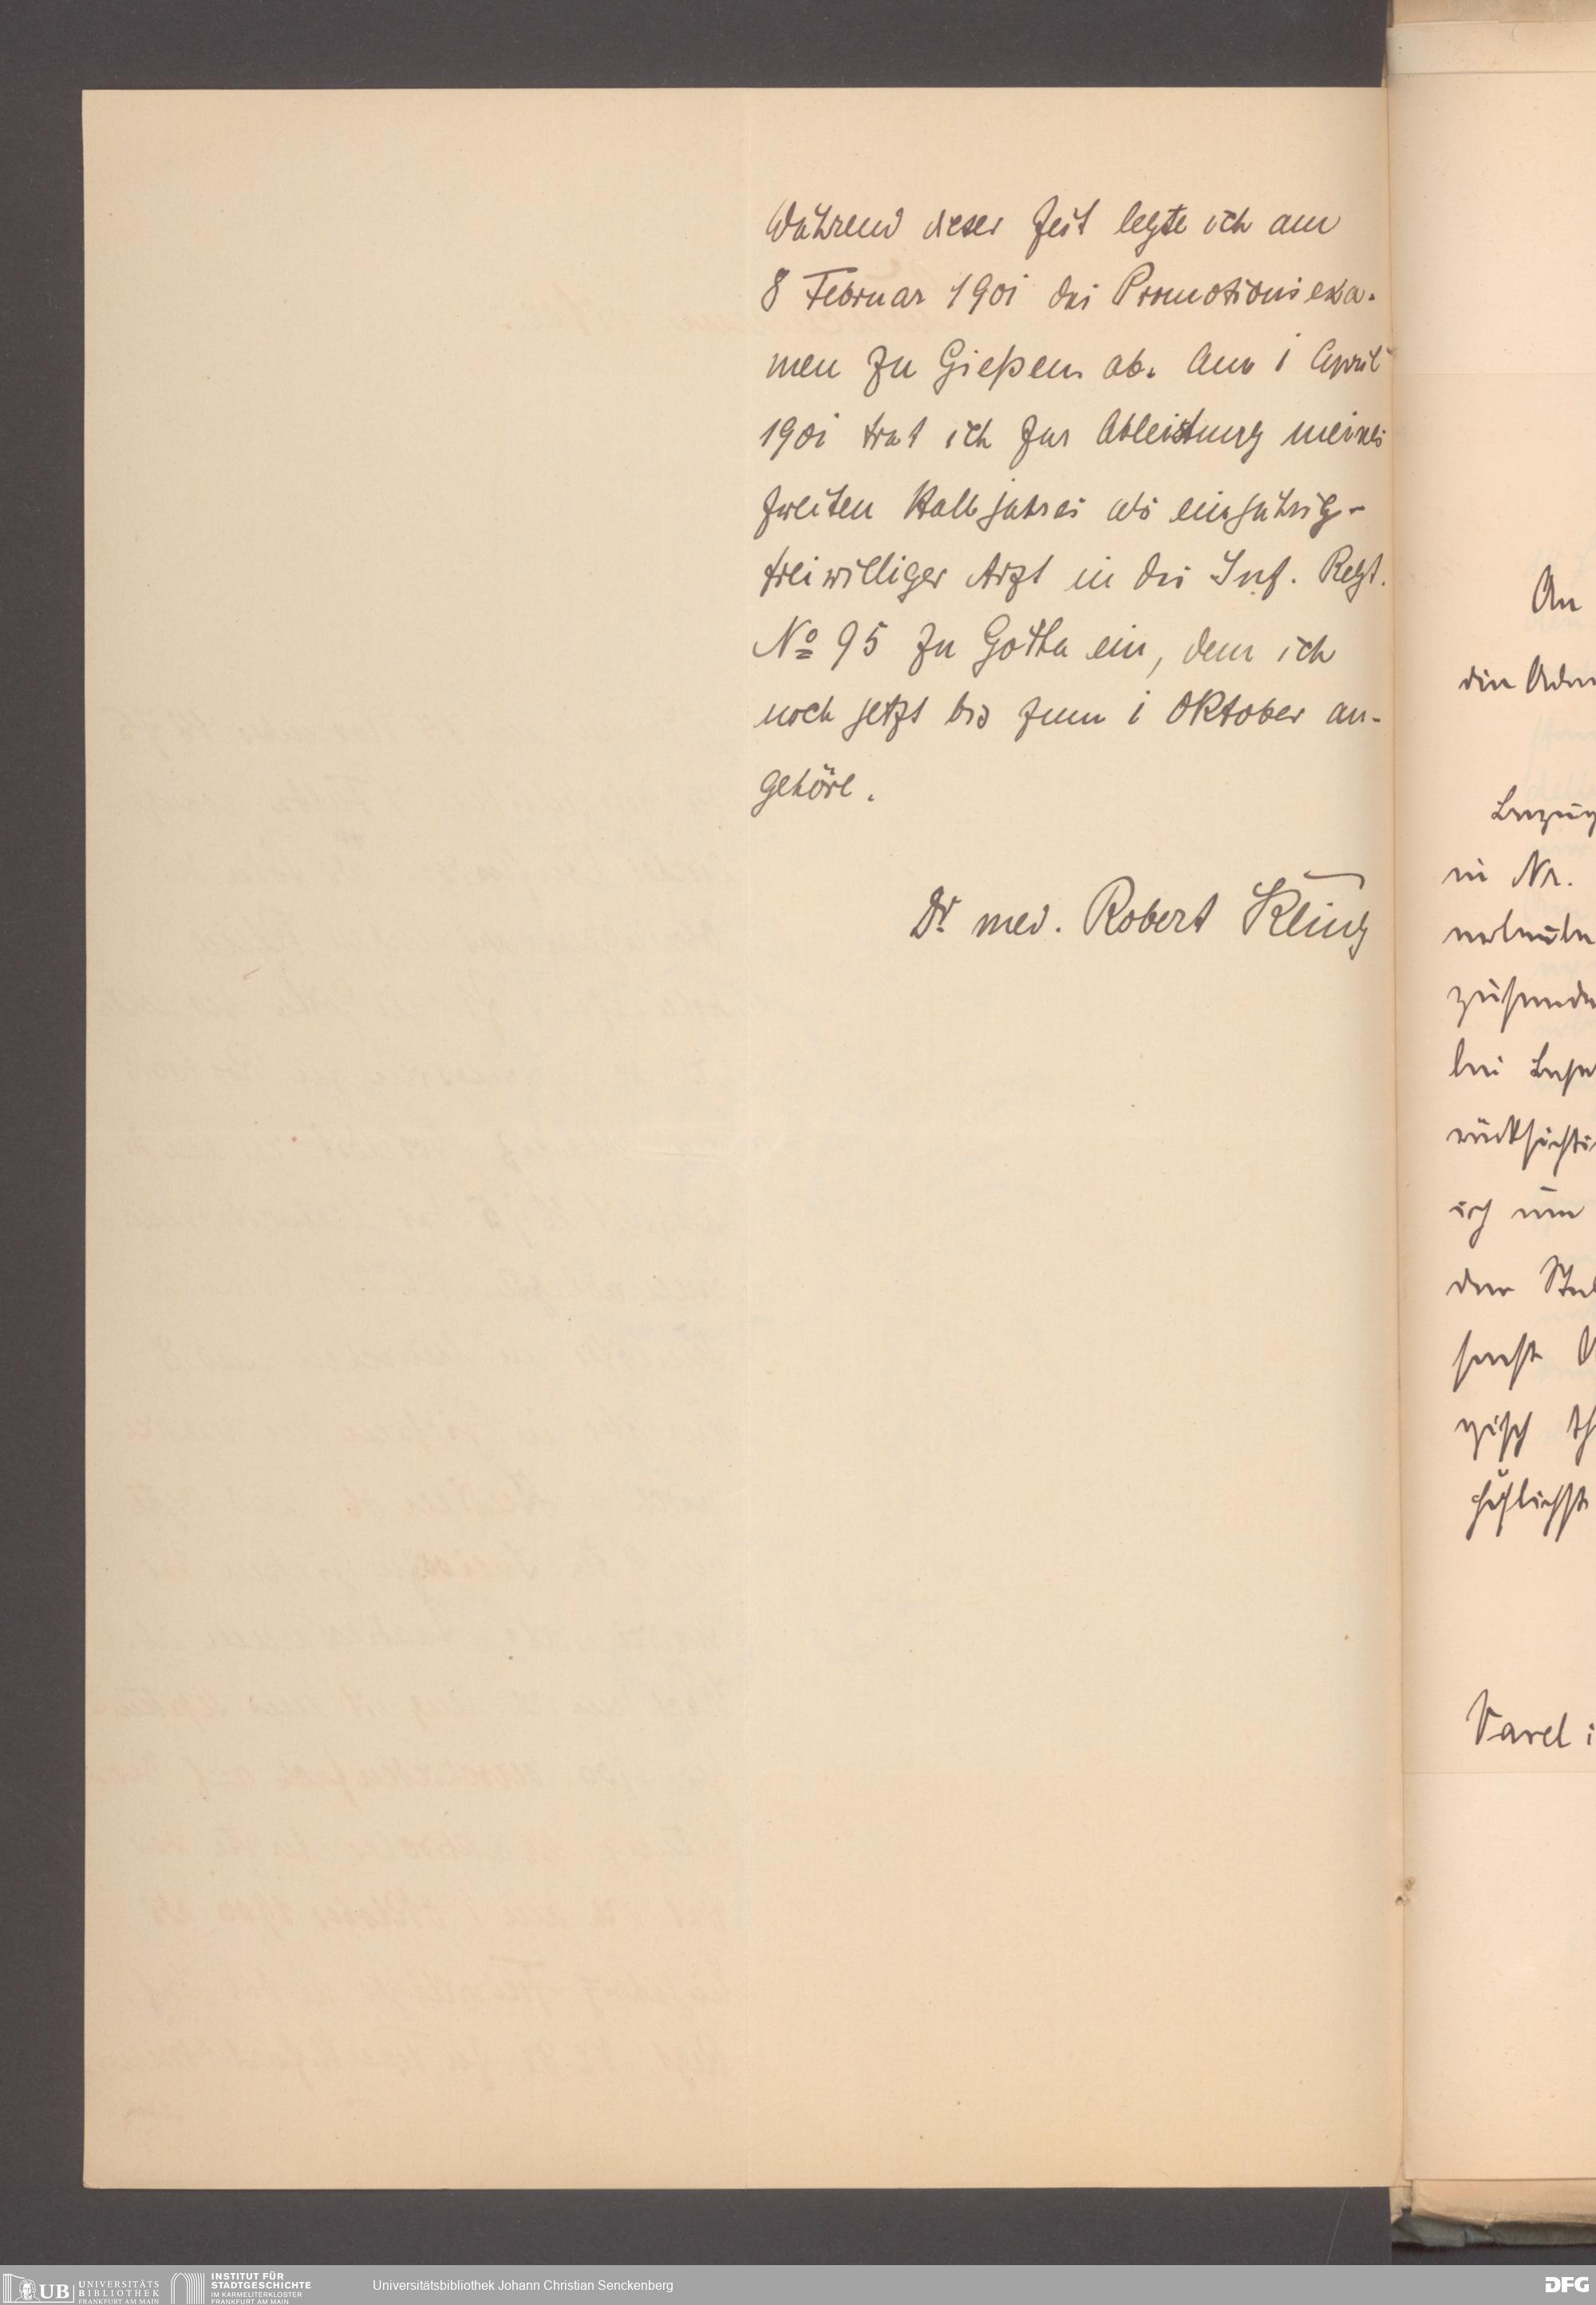 Während dieser Zeit legte ich am
8 Februar 1901 das Promotionsexa-
men zu Gießen ab. Am 1 April
1901 trat ich zur Ableistung meines
zweiten Halbjahres als einjährig-
freiwilliger Arzt in das Inf. Regt.
No 95 zu Gotha ein, dem ich
noch jetzt bis zum 1 Oktober an-
gehöre.
Dr. med. Robert Kling
An
die
in Nr.
bei
ich um
der
Varel i
UB UNIVERSITÄTS
BIBLIOTHEK
FRANKFURT AM MAIN
INSTITUT FÜR
STADTGESCHICHTE
IM KARMELITERKLOSTER
FRANKFURT AM MAIN
Universitätsbibliothek Johann Christian Senckenberg
DFG